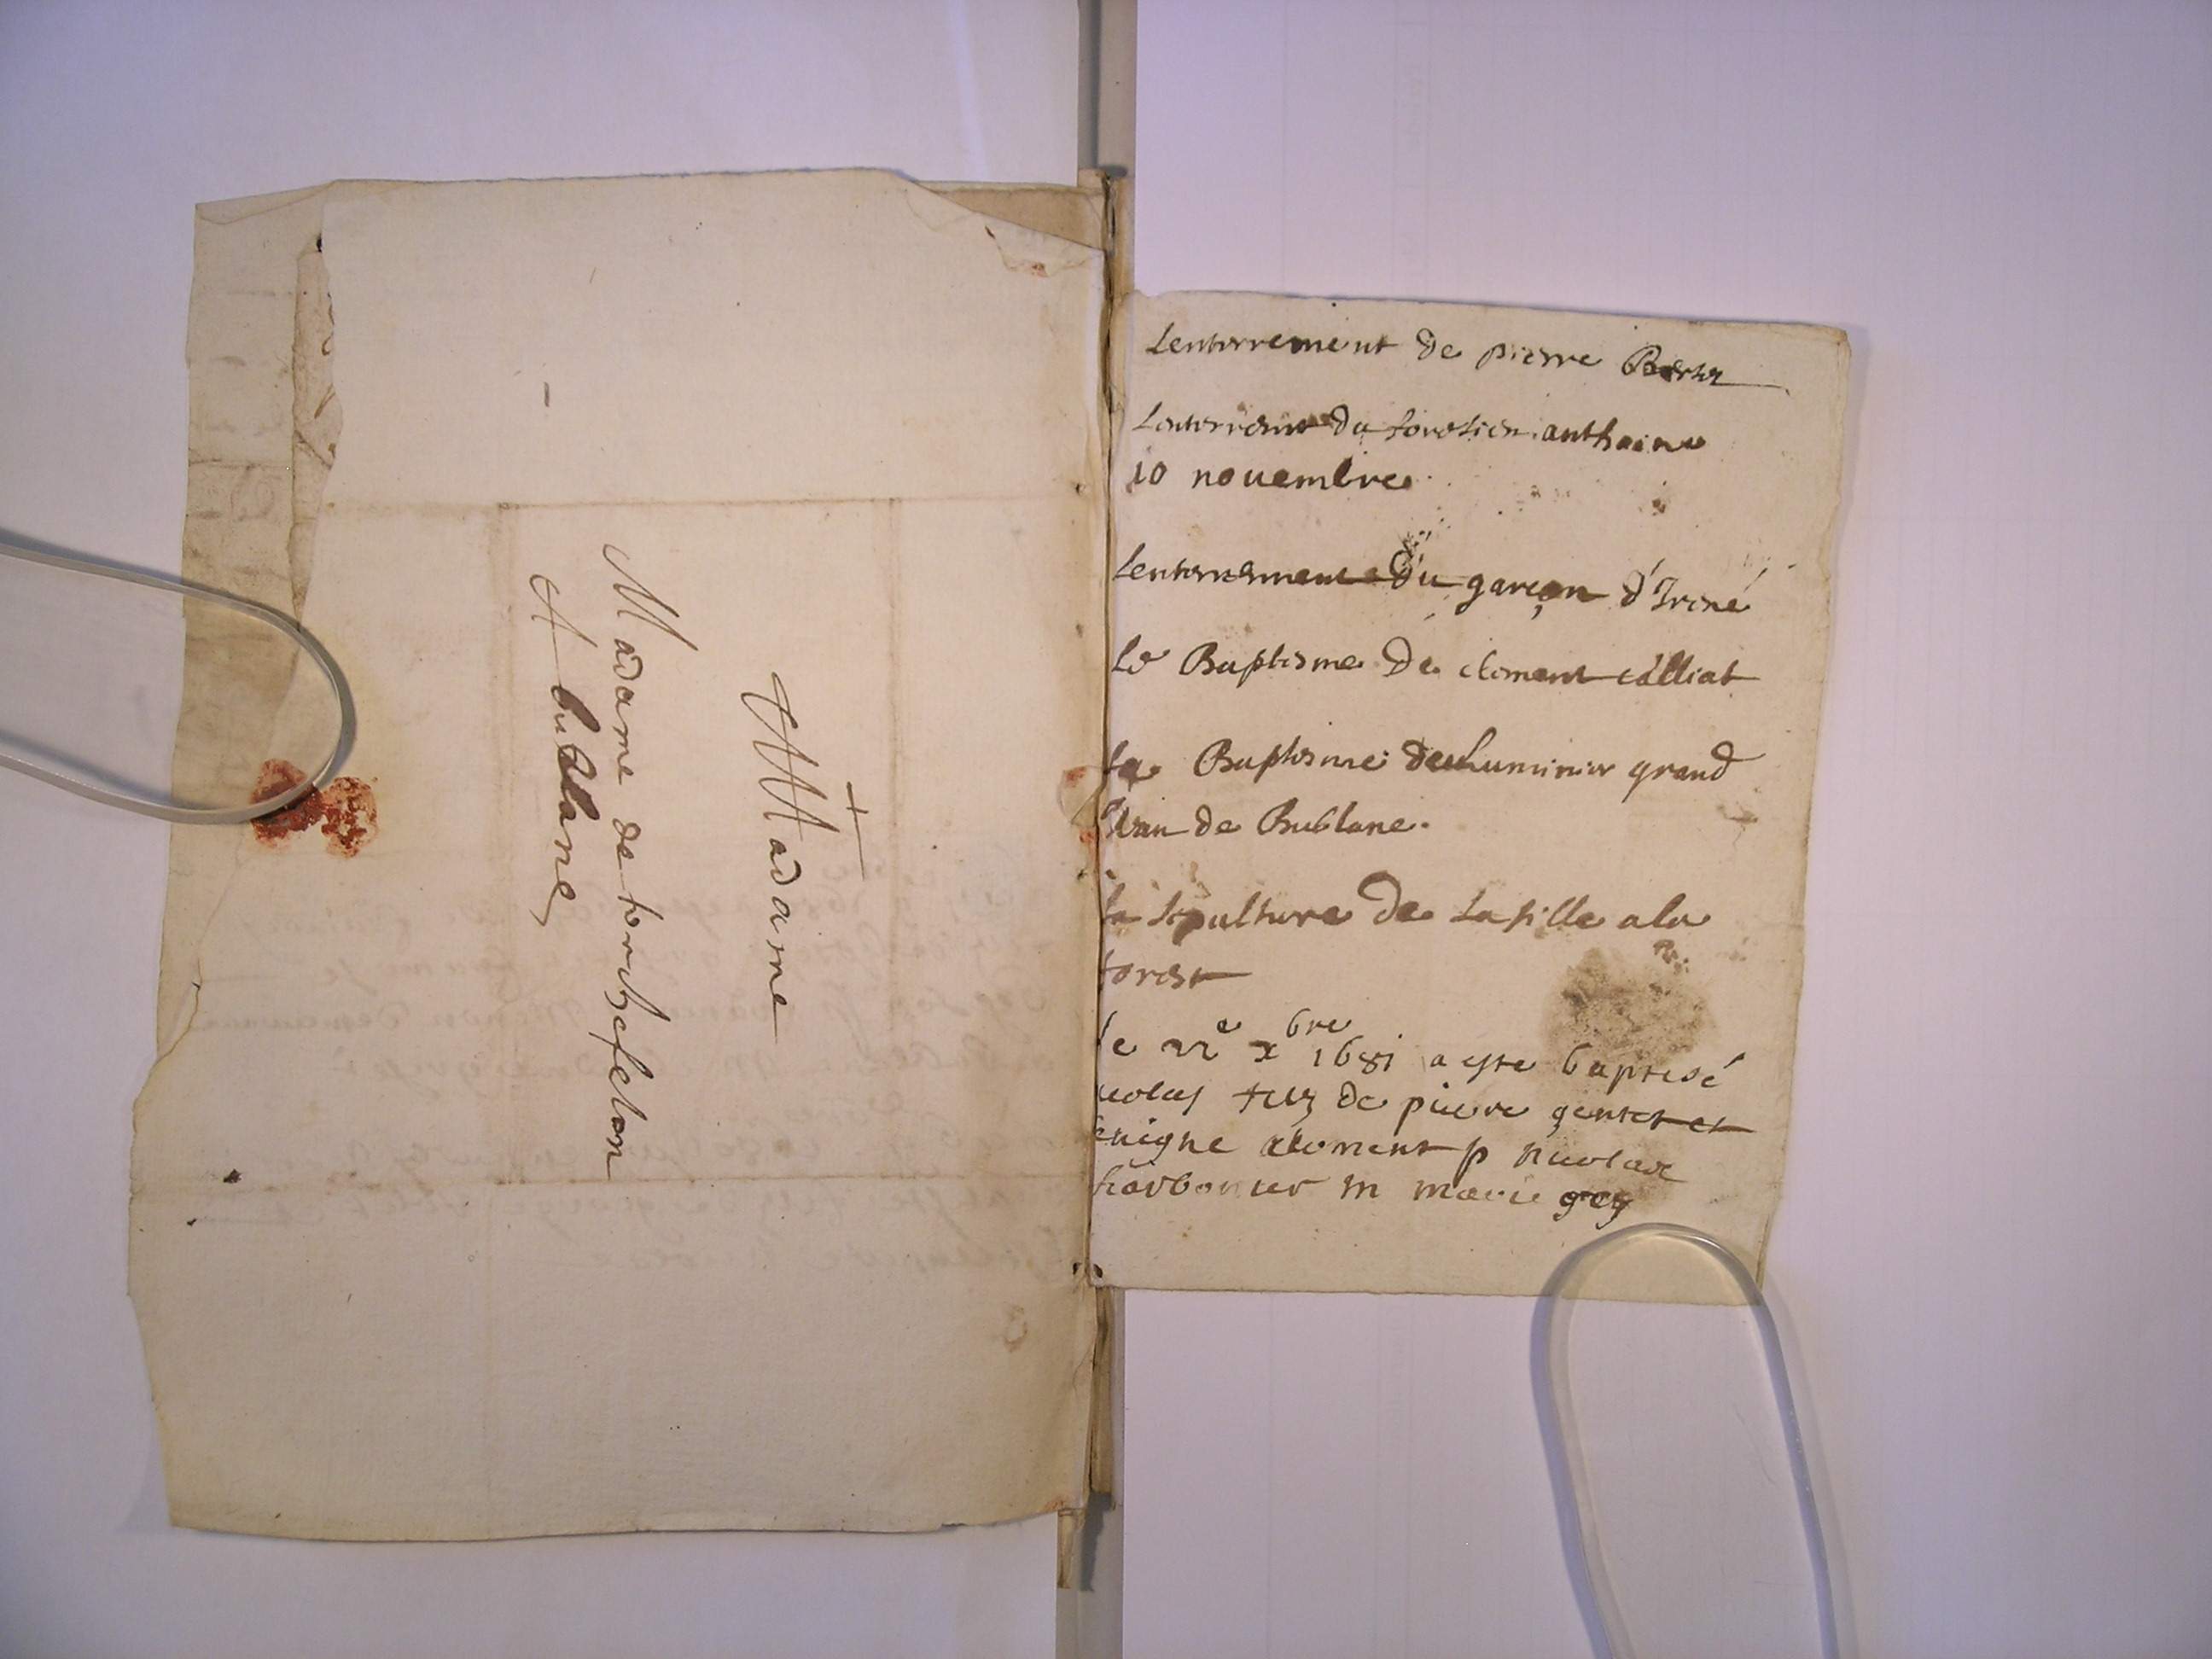 Madame
Madame de
A bublane
Lenterrement de pierre
Lenterrement du forestier anthoine
10 nouembre
Lenterrement du garçon d'Irené
Le Baptesme De clement calliat
Le Baptesme grand
Jean de Bublane.
la sepulture De La fille a la
forest
le 22e xbre 1681 a este baptisé
nicolas filz de pierre gentet et
benigne clement p nicolas
charbonier m marie gey